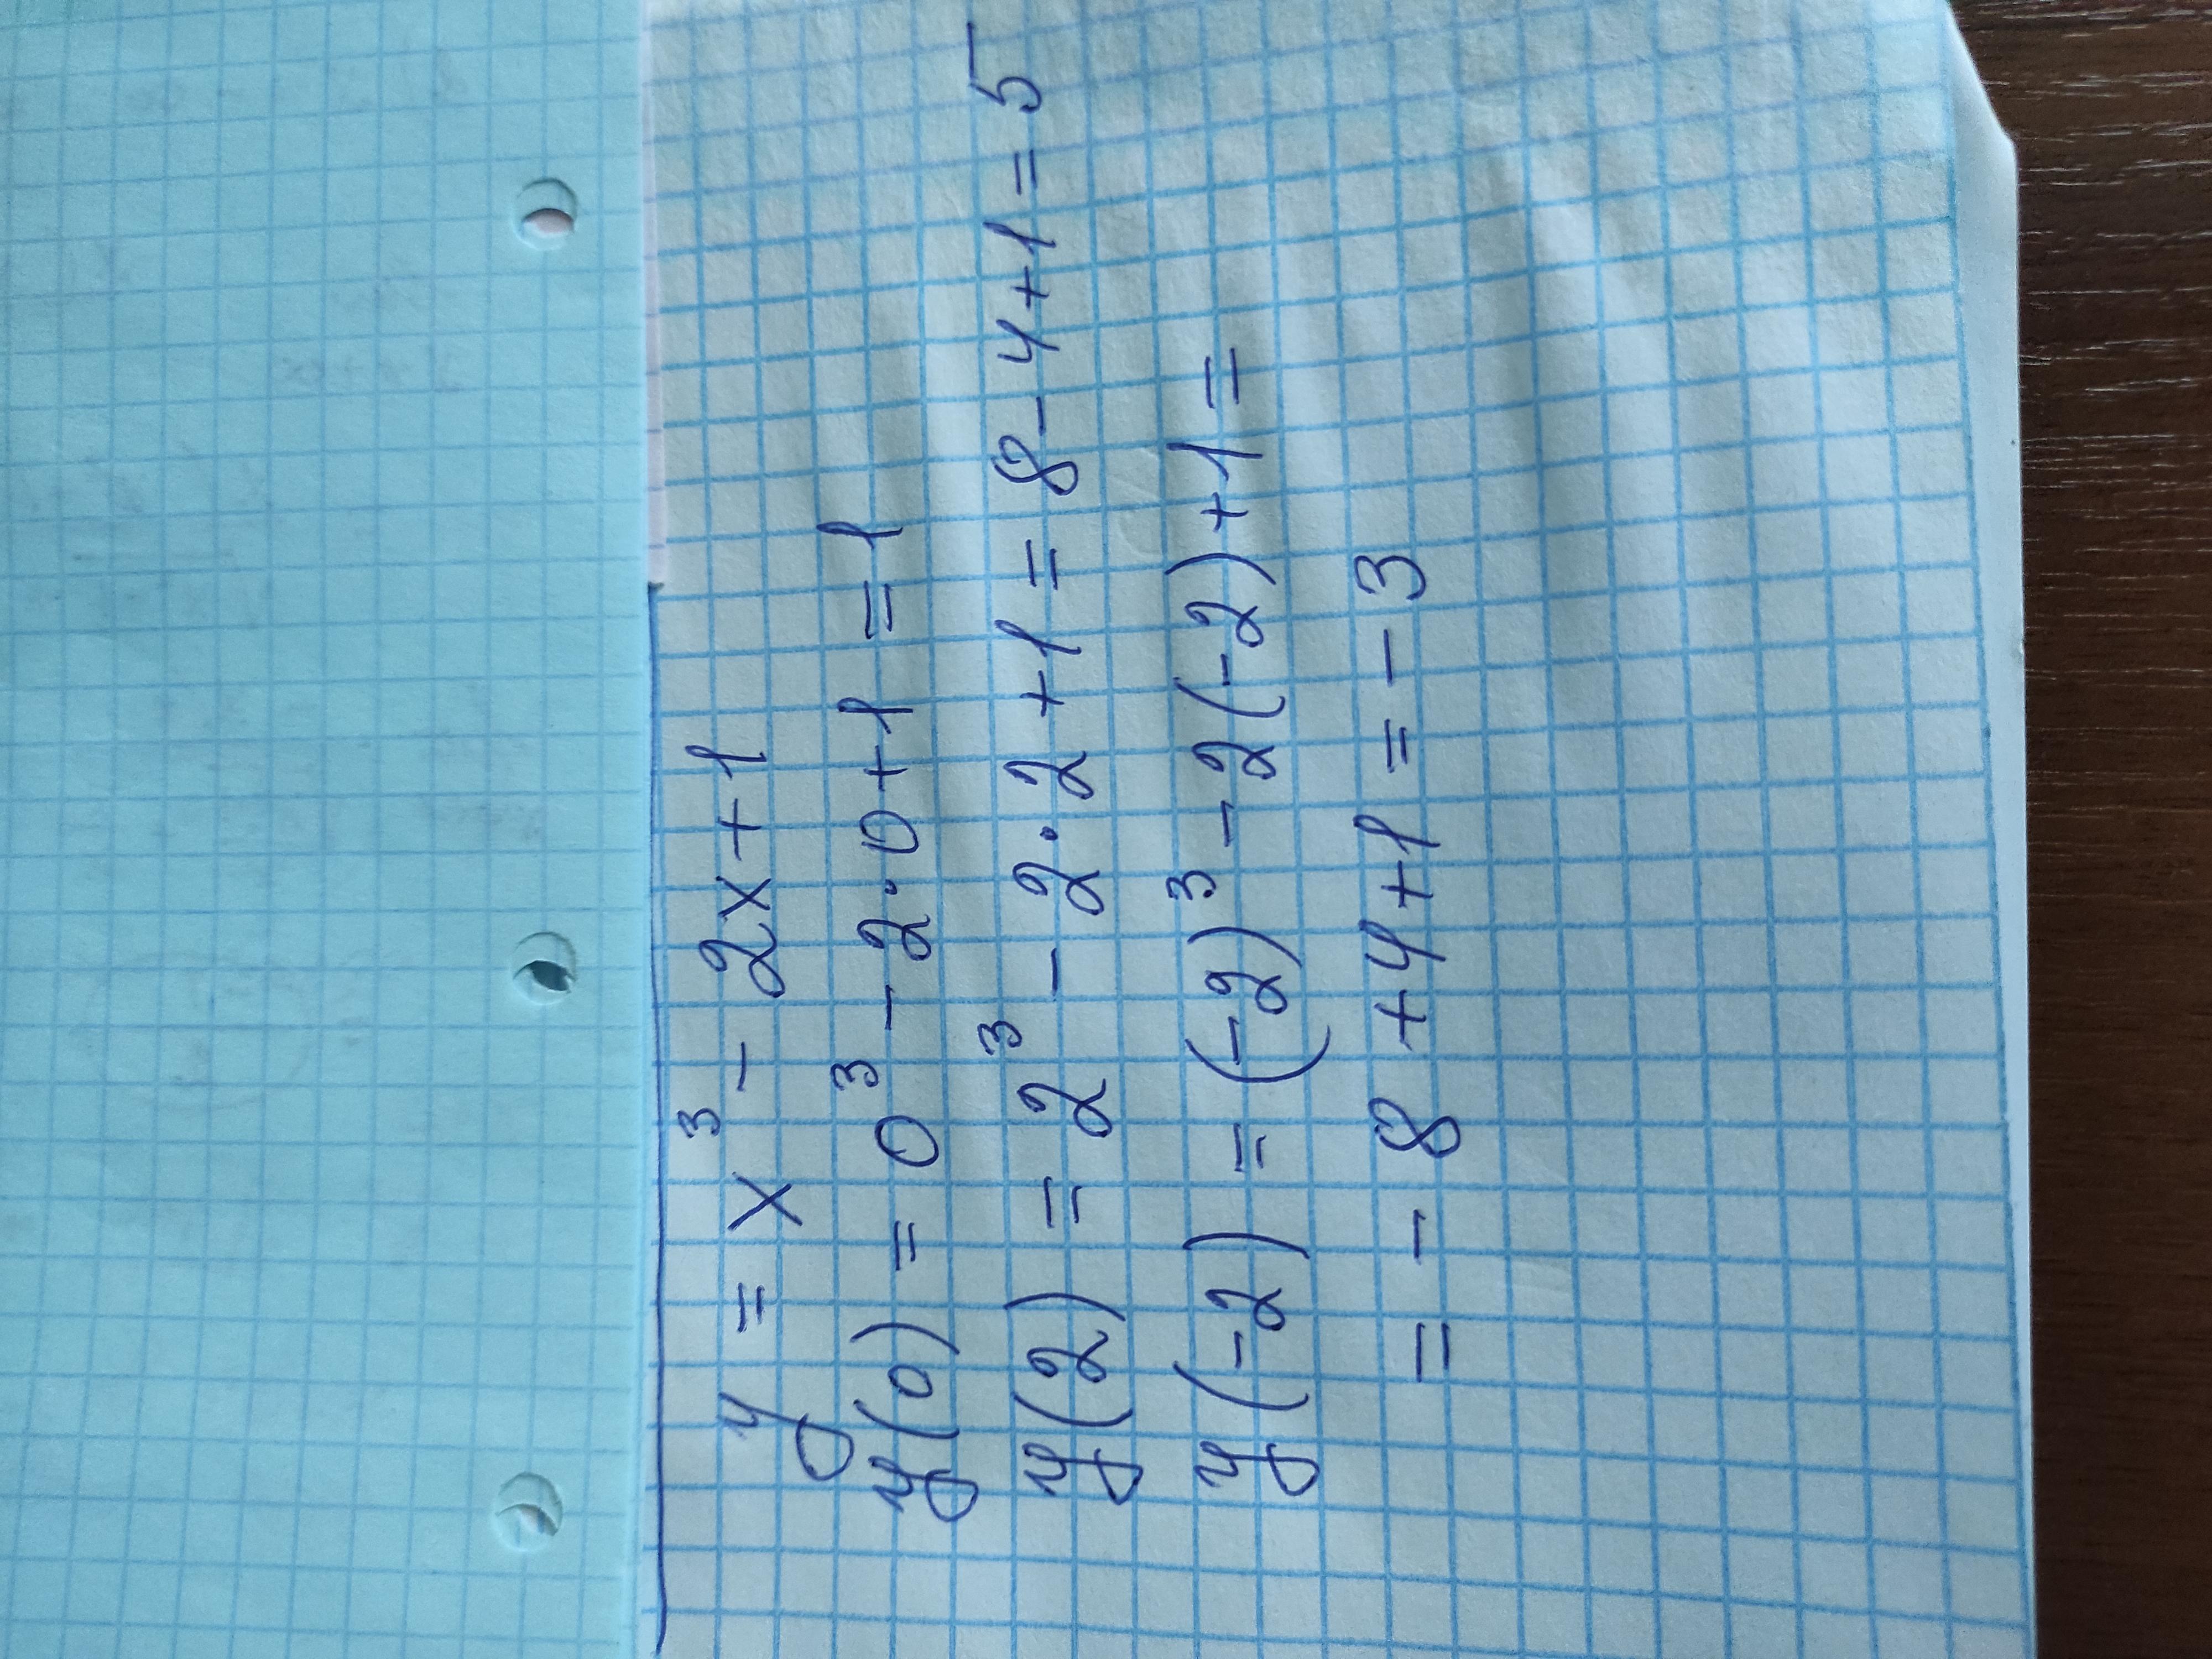 y = x³ - 2x + 1
y(0) = 0³ - 2·0 + 1 = 1
y(2) = 2³ - 2·2 + 1 = 8 - 4 + 1 = 5
y(-2) = (-2)³ - 2(-2) + 1 =
= - 8 + 4 + 1 = - 3